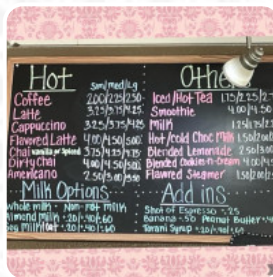 Hot
Sm/med/Lg
Coffee 2.00/2.25/2.50
Latte 3.25/3.75/4.25
Cappuccino 3.25/3.75/4.25
Flavored Latte 4.00/4.50/5.00
Chai Vanilla or Spiced 3.75/4.25/4.75
Dirty Chai 4.00/4.50/5.00
Americano 2.50/3.00/3.50
Milk Options
Whole milk Non-Fat Milk
Almond Milk .20/.40/.60
Soy Milk .20/.40/.60
Othe
Iced/Hot Tea 1.75/2.25/2.7
Smoothie 4.00/4.50
Milk 1.25/1.75/2.2
Hot/Cold Choc Milk 1.50/2.00
Blended Lemonade 2.50/3.00
Blended Cookies-n-Cream 4.00/4
Flavored Steamer 1.50/2.00/2
Add ins
Shot of Espresso .25
Banana .50 Peanut Butter
Torani Syrup .20/.40/.60